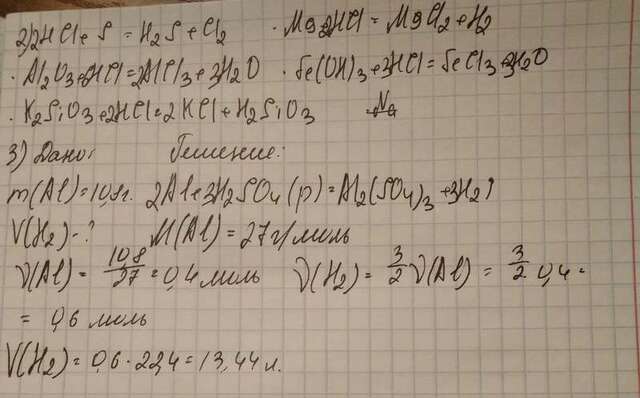 2) 2HCl + S = H₂S + Cl₂ · Mg 2HCl = MgCl₂ + H₂
· Al₂O₃ + 6HCl = 2AlCl₃ + 3H₂O · Fe(OH)₃ + 3HCl = FeCl₃ + 3H₂O
· K₂SiO₃ + 2HCl = 2KCl + H₂SiO₃
3) Дано: Решение:
m(Al) = 10,8 г. 2Al + 3H₂SO₄(р) = Al₂(SO₄)₃ + 3H₂↑
V(H₂) - ? M(Al) = 27 г/моль
ν(Al) = 10,8/27 = 0,4 моль ν(H₂) = 3/2 ν(Al) = 3/2 · 0,4 =
= 0,6 моль
V(H₂) = 0,6 · 22,4 = 13,44 л.